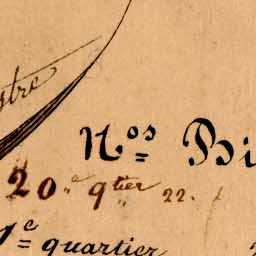 stre
Nos Bi
20e qtier 22.
1e quartier